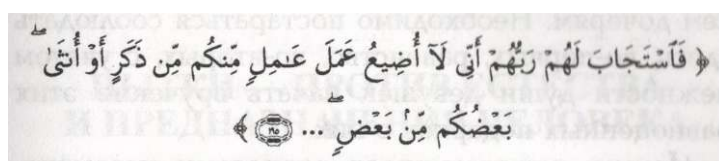 ﴿ فَٱسْتَجَابَ لَهُمْ رَبُّهُمْ أَنِّى لَآ أُضِيعُ عَمَلَ عَـٰمِلٍ مِّنكُم مِّن ذَكَرٍ أَوْ أُنثَىٰ ۖ
بَعْضُكُم مِّنۢ بَعْضٍ ۖ ... ١٩٥ ﴾